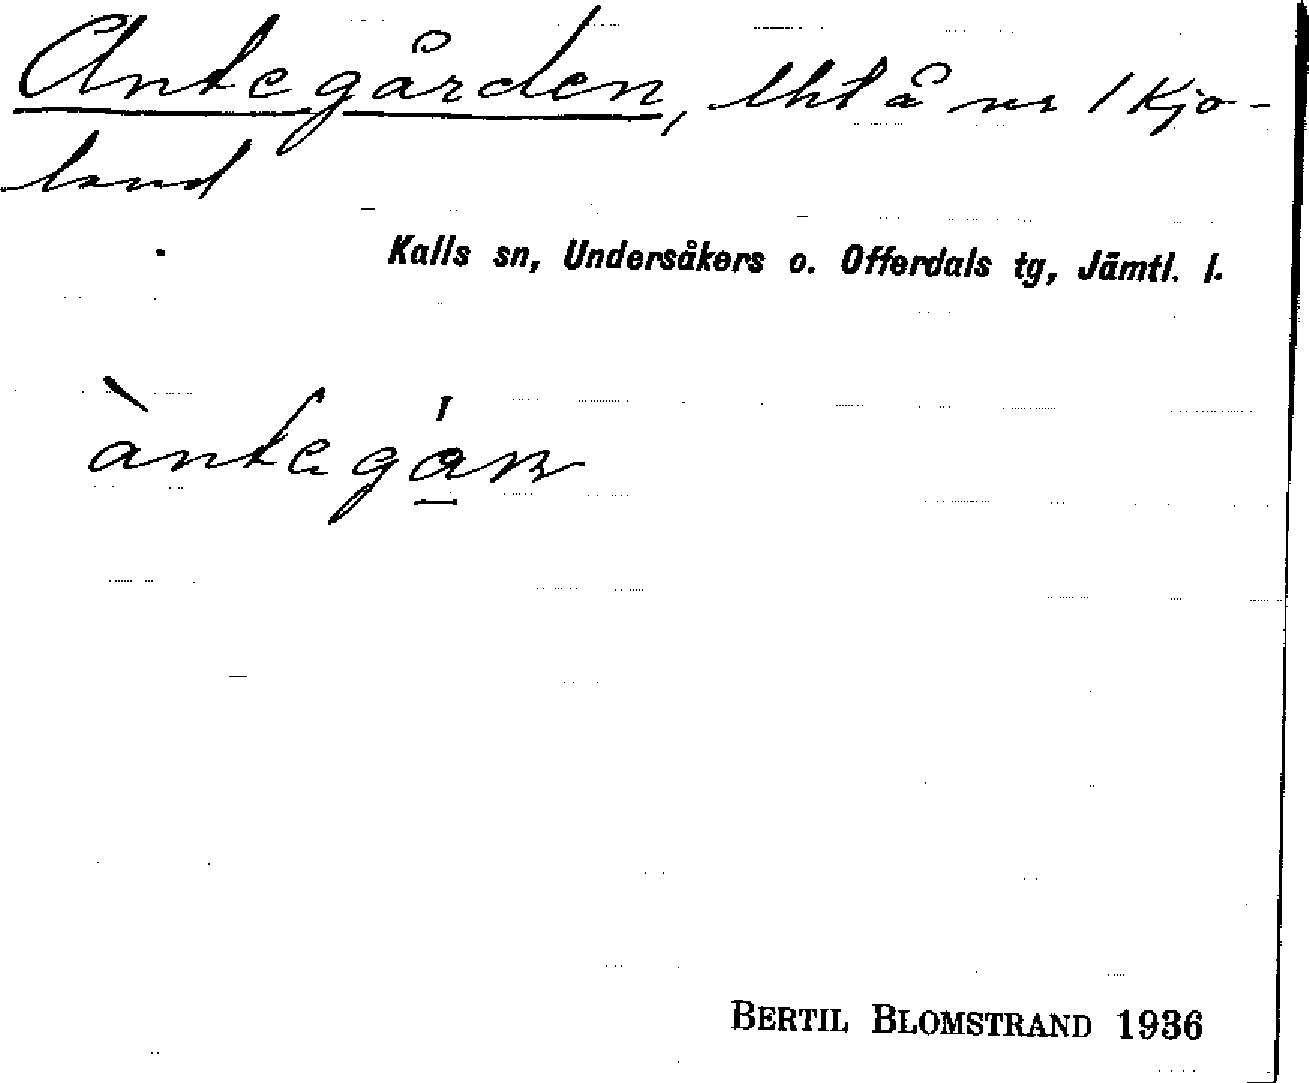 Antegården, lht å nr 1 Kjo-
land
Kalls sn, Undersåkers o. Offerdals tg, Jämtl. l.
BERTIL BLOMSTRAND 1936